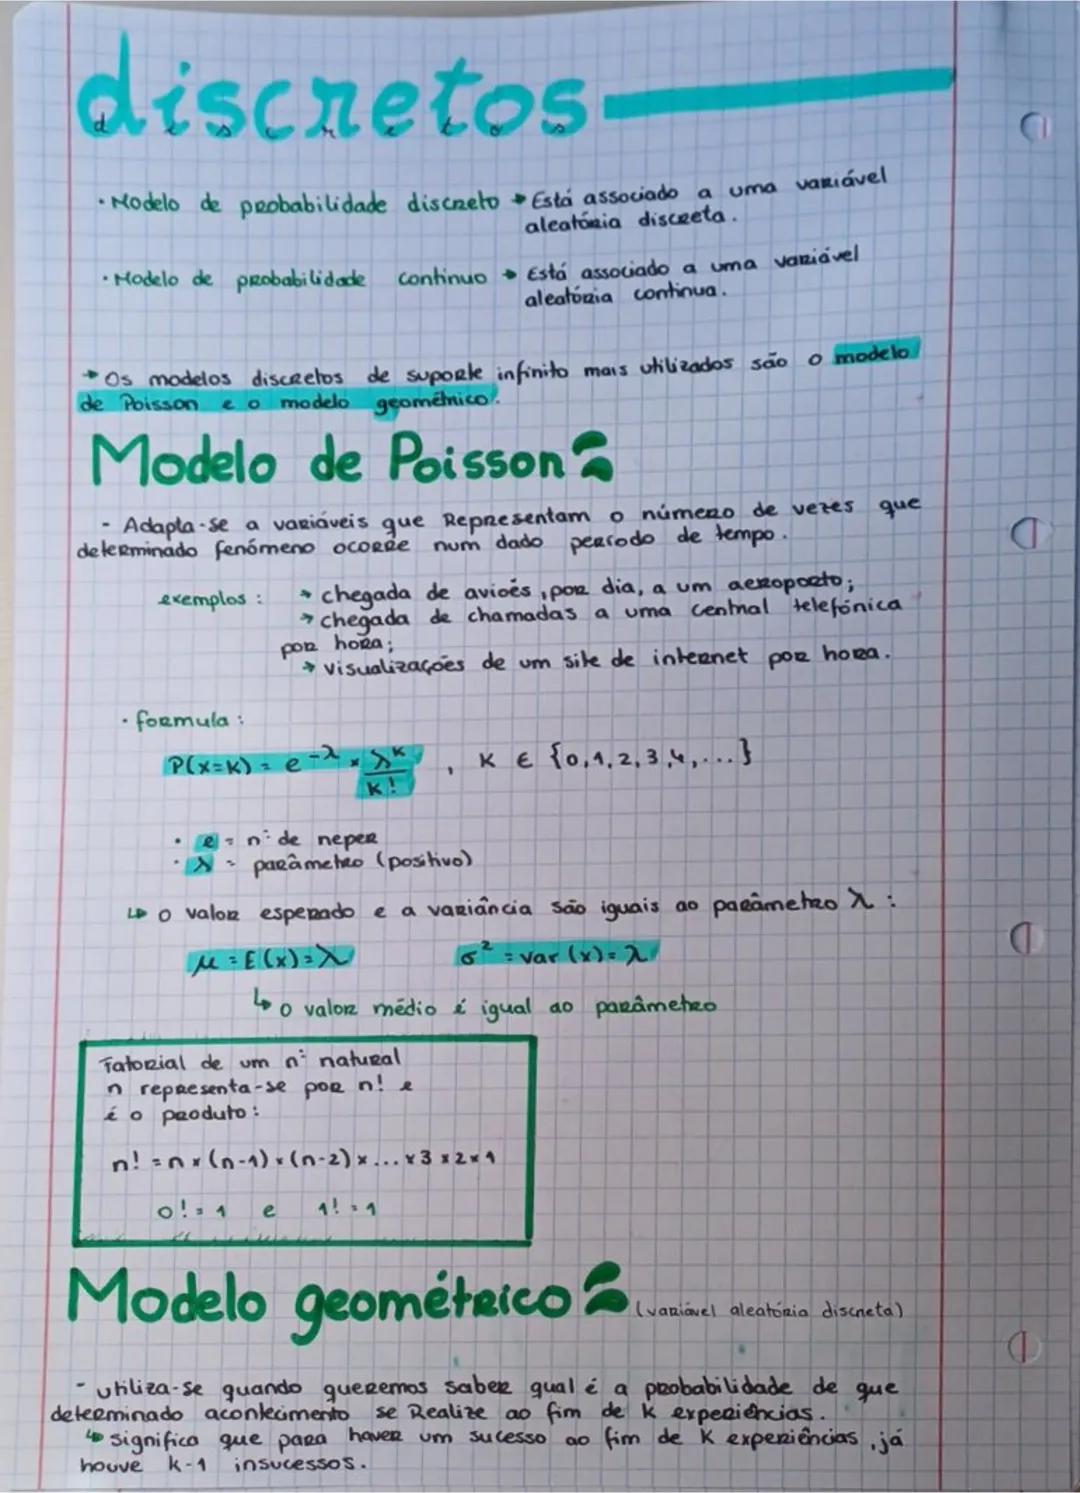 discretos
discretos
• Modelo de probabilidade discreto → Está associado a uma variável
aleatória discreta.
• Modelo de probabilidade continuo → Está associado a uma variável
aleatória continua.
→ Os modelos discretos de suporte infinito mais utilizados são o modelo
de Poisson e o modelo geométrico.
Modelo de Poisson
- Adapta-se a variáveis que Representam o número de vezes que
determinado fenómeno ocorre num dado período de tempo.
exemplos : → chegada de avioẽs, por dia, a um aeroporto;
→ chegada de chamadas a uma central telefónica
por hora;
→ visualizações de um site de internet por hora.
• formula :
P(x=k) = e^-λ × λ^k/k! , K ∈ {0,1,2,3,4,...}
• e = nº de neper
• λ = parâmetro (positivo)
↳ o valor esperado e a variância são iguais ao parâmetro λ :
μ = E(x) = λ σ² = var (x) = λ
↳ o valor médio é igual ao parâmetro
Fatorial de um nº natural
n representa-se por n! e
é o produto :
n! = n × (n-1) × (n-2) × ... × 3 × 2 × 1
0! = 1 e 1! = 1
Modelo geométrico (variável aleatória discreta)
- utiliza-se quando queremos saber qual é a probabilidade de que
determinado acontecimento se Realize ao fim de k experiências.
↳ significa que para haver um sucesso ao fim de K experiências, já
houve k-1 insucessos.